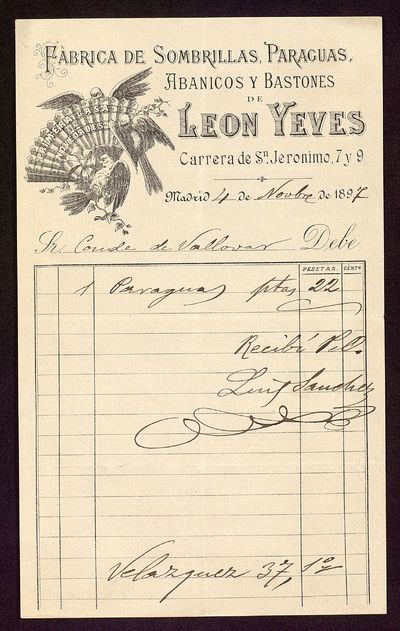 FÀBRICA DE SOMBRILLAS, PARAGUAS,
ABANICOS Y BASTONES
DE
LEON YEVES
Carrera de Sn. Jeronimo, 7 y 9
Madrid 4 de Novbre de 1897
Sr. Conde de Vallovar Debe
PESETAS. CENTs
1 Paraguas ptas 22
Recibí
Luis Sanchez
Velazquez 37, 1º